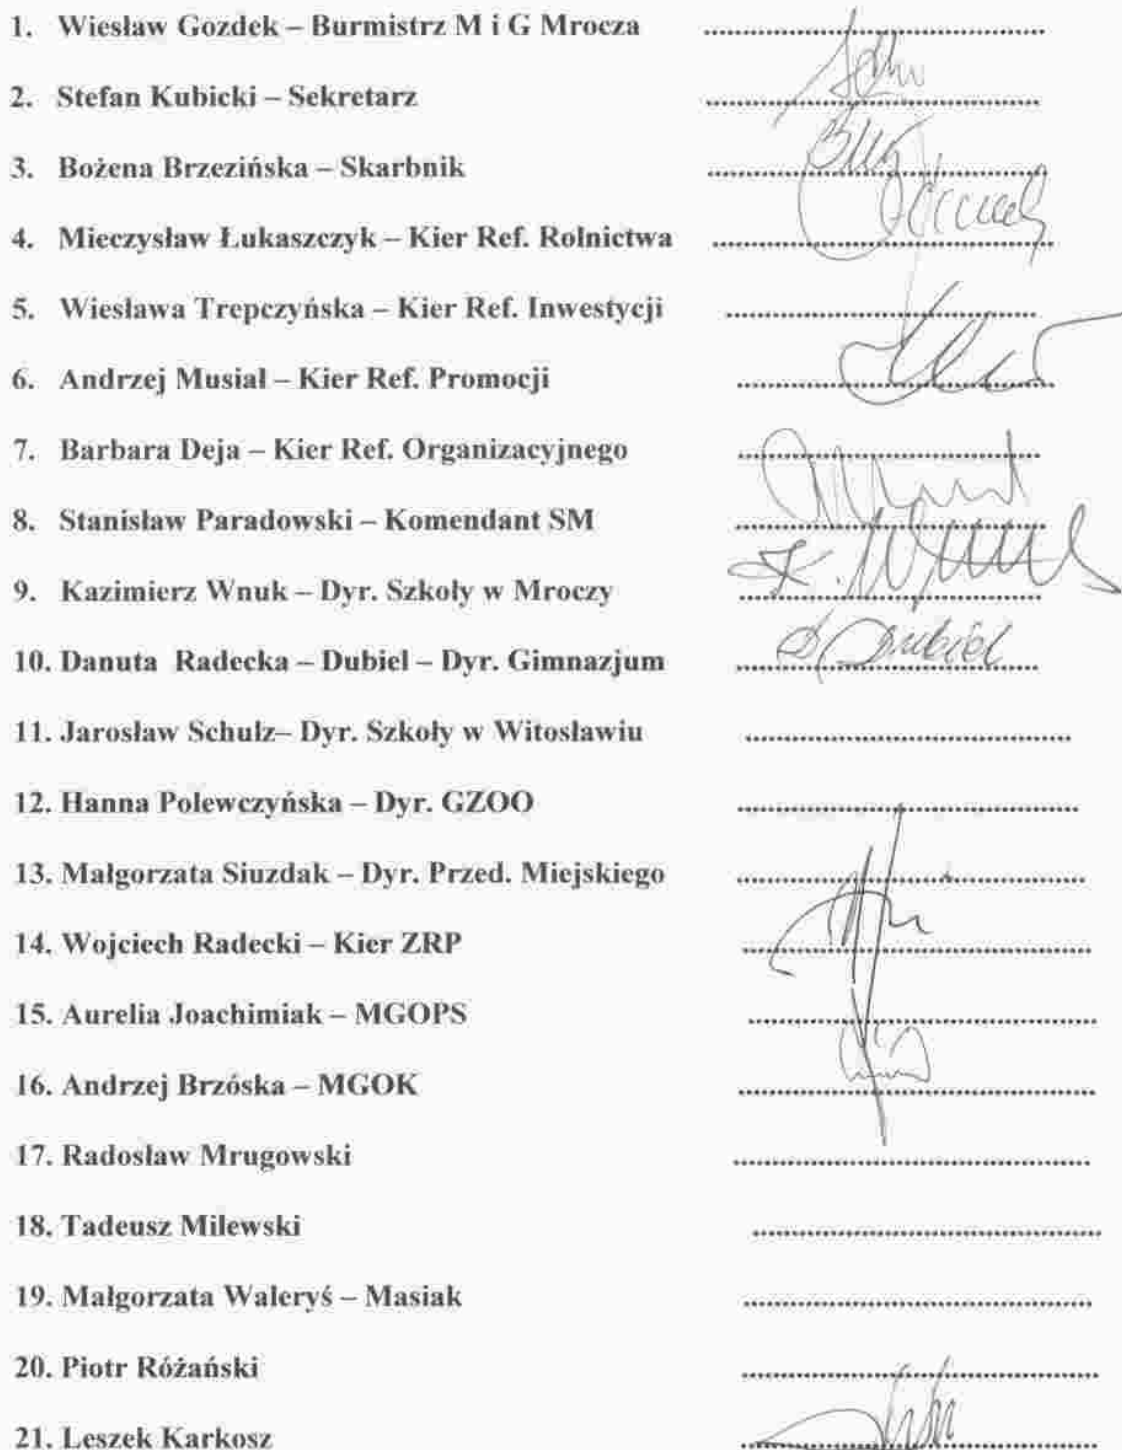 1. Wiesław Gozdek – Burmistrz M i G Mrocza
2. Stefan Kubicki – Sekretarz
3. Bożena Brzezińska – Skarbnik
4. Mieczysław Łukaszczyk – Kier Ref. Rolnictwa
5. Wiesława Trepczyńska – Kier Ref. Inwestycji
6. Andrzej Musiał – Kier Ref. Promocji
7. Barbara Deja – Kier Ref. Organizacyjnego
8. Stanisław Paradowski – Komendant SM
9. Kazimierz Wnuk – Dyr. Szkoły w Mroczy
10. Danuta Radecka – Dubiel – Dyr. Gimnazjum D Dubiel
11. Jarosław Schulz– Dyr. Szkoły w Witosławiu
12. Hanna Polewczyńska – Dyr. GZOO
13. Małgorzata Siuzdak – Dyr. Przed. Miejskiego
14. Wojciech Radecki – Kier ZRP
15. Aurelia Joachimiak – MGOPS
16. Andrzej Brzóska – MGOK
17. Radosław Mrugowski
18. Tadeusz Milewski
19. Małgorzata Waleryś – Masiak
20. Piotr Różański
21. Leszek Karkosz